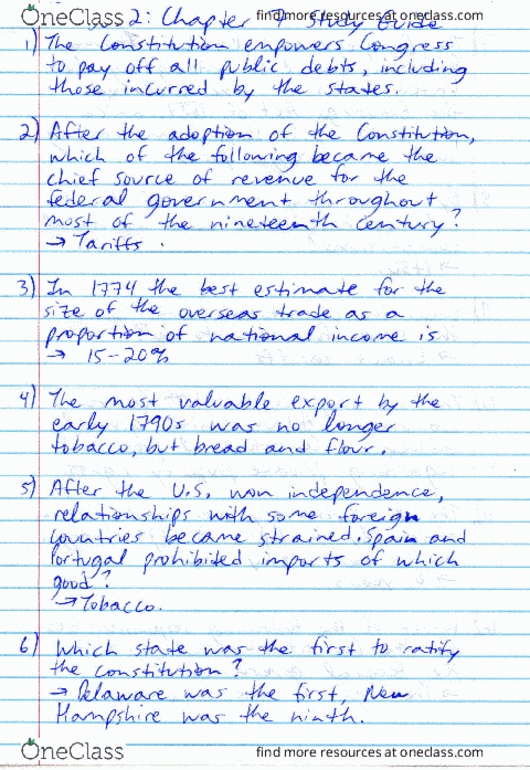 OneClass
find more resources at oneclass.com
2: Chapter 7 Study Guide
1) The Constitution empowers Congress
to pay off all public debts, including
those incurred by the states.
2) After the adoption of the Constitution,
which of the following became the
chief source of revenue for the
federal government throughout
most of the nineteenth century?
→ Tariffs.
3) In 1774 the best estimate for the
size of the overseas trade as a
proportion of national income is
→ 15-20%
4) The most valuable export by the
early 1790s was no longer
tobacco, but bread and flour.
5) After the U.S. won independence,
relationships with some foreign
countries became strained. Spain and
Portugal prohibited imports of which
good?
→ Tobacco.
6) Which state was the first to ratify
the constitution?
→ Delaware was the first, New
Hampshire was the ninth.
OneClass
find more resources at oneclass.com